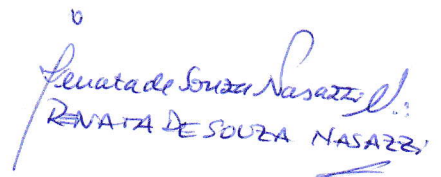 Renata de Souza Nasazzi
RENATA DE SOUZA NASAZZI